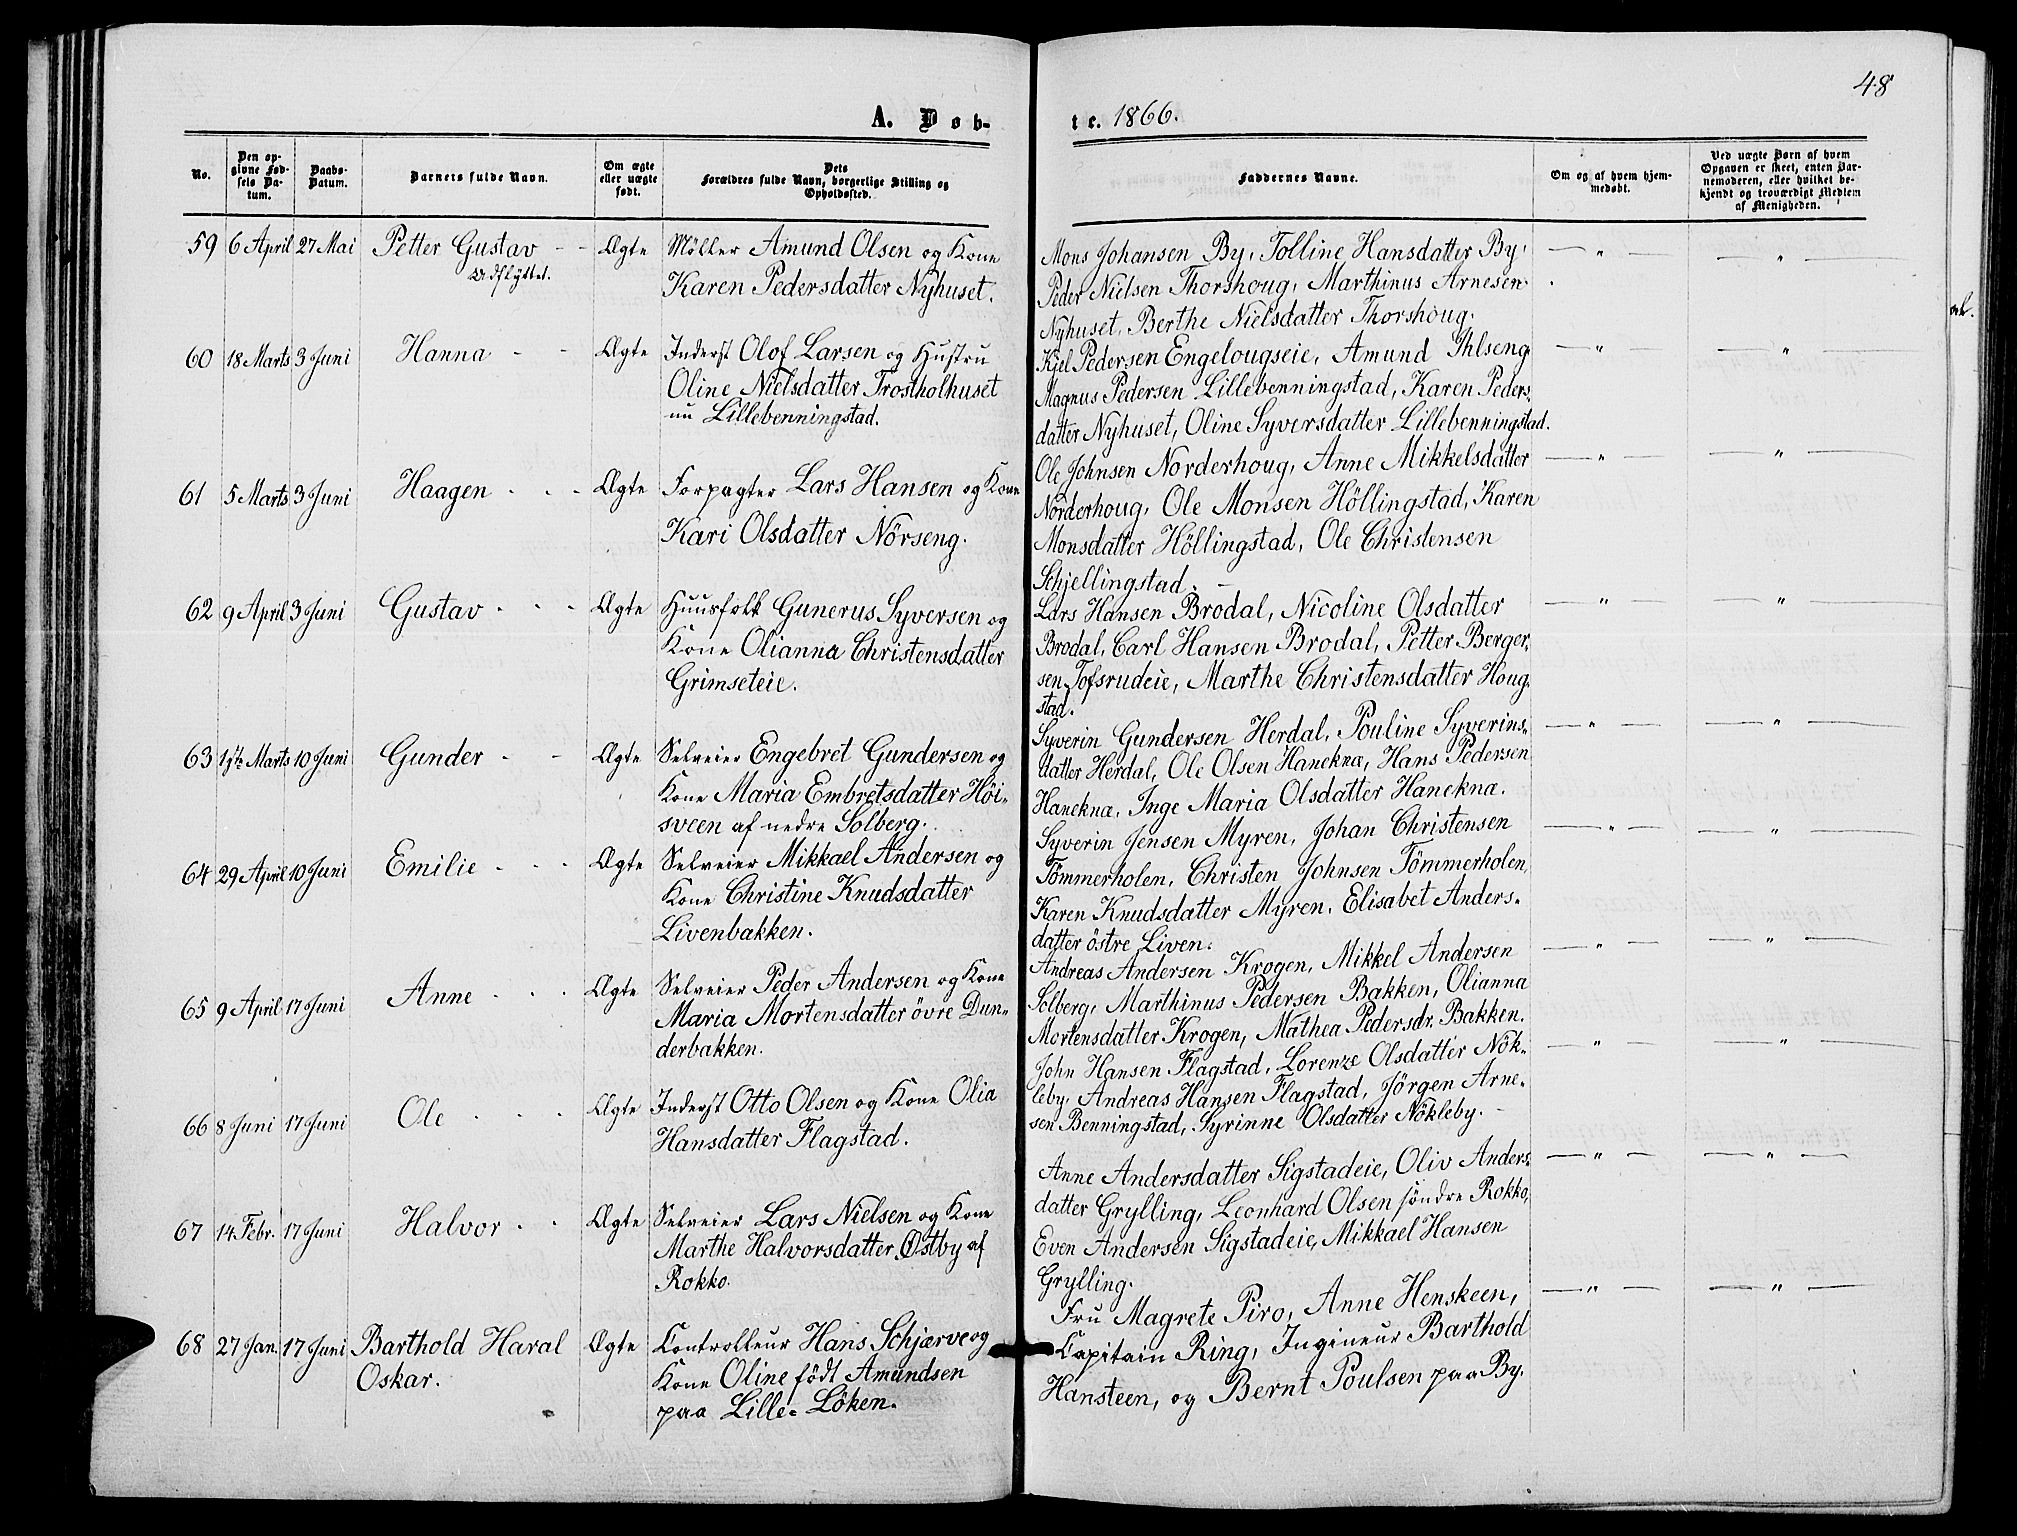 48
A. Døb-
te. 1866.
No.
Den op-
givne Fød-
sels Da-
tum.
Daabs-
Datum.
Barnets fulde Navn.
Om ægte
eller uægte
født.
Dets
Forældres fulde Navn, borgerlige Stilling og
Opholdssted.
Faddernes Navne.
Om og af hvem hjem-
medøbt.
Ved uægte Børn af hvem
Opgaven er skeet, enten Bar-
nemoderen, eller hvilket be-
kjendt og troværdigt Medlem
af Menigheden.
59 6 April 27 Mai Petter Gustav - - Ægte Möller Amund Olsen og Kone
Udflyttet.
Karen Pedersdatter Nyhuset.
Mons Johansen By, Tolline Hansdatter By,
Peder Nielsen Thorshoug, Marthinus Arnesen
Nyhuset, Berthe Nielsdatter Thorshoug.
— " — — " —
60 18 Marts 3 Juni Hanna - - Ægte Inderst Olof Larsen og Hustru
Oline Nielsdatter Trostholhuset
nu Lillebenningstad.
Kjel Pedersen Engelougseie, Amund Ihlseng
Magnus Pedersen Lillebenningstad, Karen Peders-
datter Nyhuset, Oline Syversdatter Lillebenningstad.
— " — — " —
61 5 Marts 3 Juni Haagen - - - Ægte Forpagter Lars Hansen og Kone
Kari Olsdatter Nörseng.
Ole Johnsen Norderhoug, Anne Mikkelsdatter
Norderhoug, Ole Monsen Höllingstad, Karen
Monsdatter Höllingstad, Ole Christensen
Schjellingstad. -
— " — — " —
62 9 April 3 Juni Gustav - - - Ægte Huusfolk Gunerus Syversen og
Kone Olianna Christensdatter
Grimseteie.
Lars Hansen Brodal, Nicoline Olsdatter
Brodal, Carl Hansen Brodal, Petter Berger-
sen Tofsrudeie, Marthe Christensdatter Houg-
stad.
— " — — " —
63 1ste Marts 10 Juni Gunder - - Ægte Selveier Engebret Gundersen og
Kone Maria Embretsdatter Höi-
sveen af nedre Solberg.
Syverin Gundersen Herdal, Pouline Syverins-
datter Herdal, Ole Olsen Haneknæ, Hans Pedersen
Haneknæ, Inge Maria Olsdatter Haneknæ.
— " — — " —
64 29 April 10 Juni Emilie - - - Ægte Selveier Mikkael Andersen og
Kone Christine Knudsdatter
Livenbakken.
Syverin Jensen Myren, Johan Christensen
Tömmerholen, Christen Johnsen Tömmerholen,
Karen Knudsdatter Myren, Elisabet Anders-
datter östre Liven.
— " — — " —
65 9 April 17 Juni Anne - - - Ægte Selveier Peder Andersen og Kone
Maria Mortensdatter övre Dun-
derbakken.
Andreas Andersen Krogen, Mikkel Andersen
Solberg, Marthinus Pedersen Bakken, Olianna
Mortensdatter Krogen, Mathea Pedersdr. Bakken.
— " — — " —
66 8 Juni 17 Juni Ole - - - Ægte Inderst Otto Olsen og Kone Olia
Hansdatter Flagstad.
John Hansen Flagstad, Lorenze Olsdatter Nök-
leby, Andreas Hansen Flagstad, Jörgen Arne-
sen Benningstad, Syrinne Olsdatter Nökleby. -
— " — — " —
67 14 Febr. 17 Juni Halvor - - Ægte Selveier Lars Nielsen og Kone
Marthe Halvorsdatter Östby af
Rokko.
Anne Andersdatter Sigstadeie, Oliv Anders-
datter Grylling, Leonhard Olsen söndre Rokko,
Even Andersen Sigstadeie, Mikkael Hansen
Grylling.
— " — — " —
68 27 Jan. 17 Juni Barthold Haral Ægte Controlleur Hans Schjærve og
Oskar.
Kone Oline födt Amundsen
paa Lille-Löken.
Fru Magrete Piro, Anne Henskeen,
Capitain Ring, Ingineur Barthold
Hansteen, og Bernt Poulsen paa By.
— " — — " —